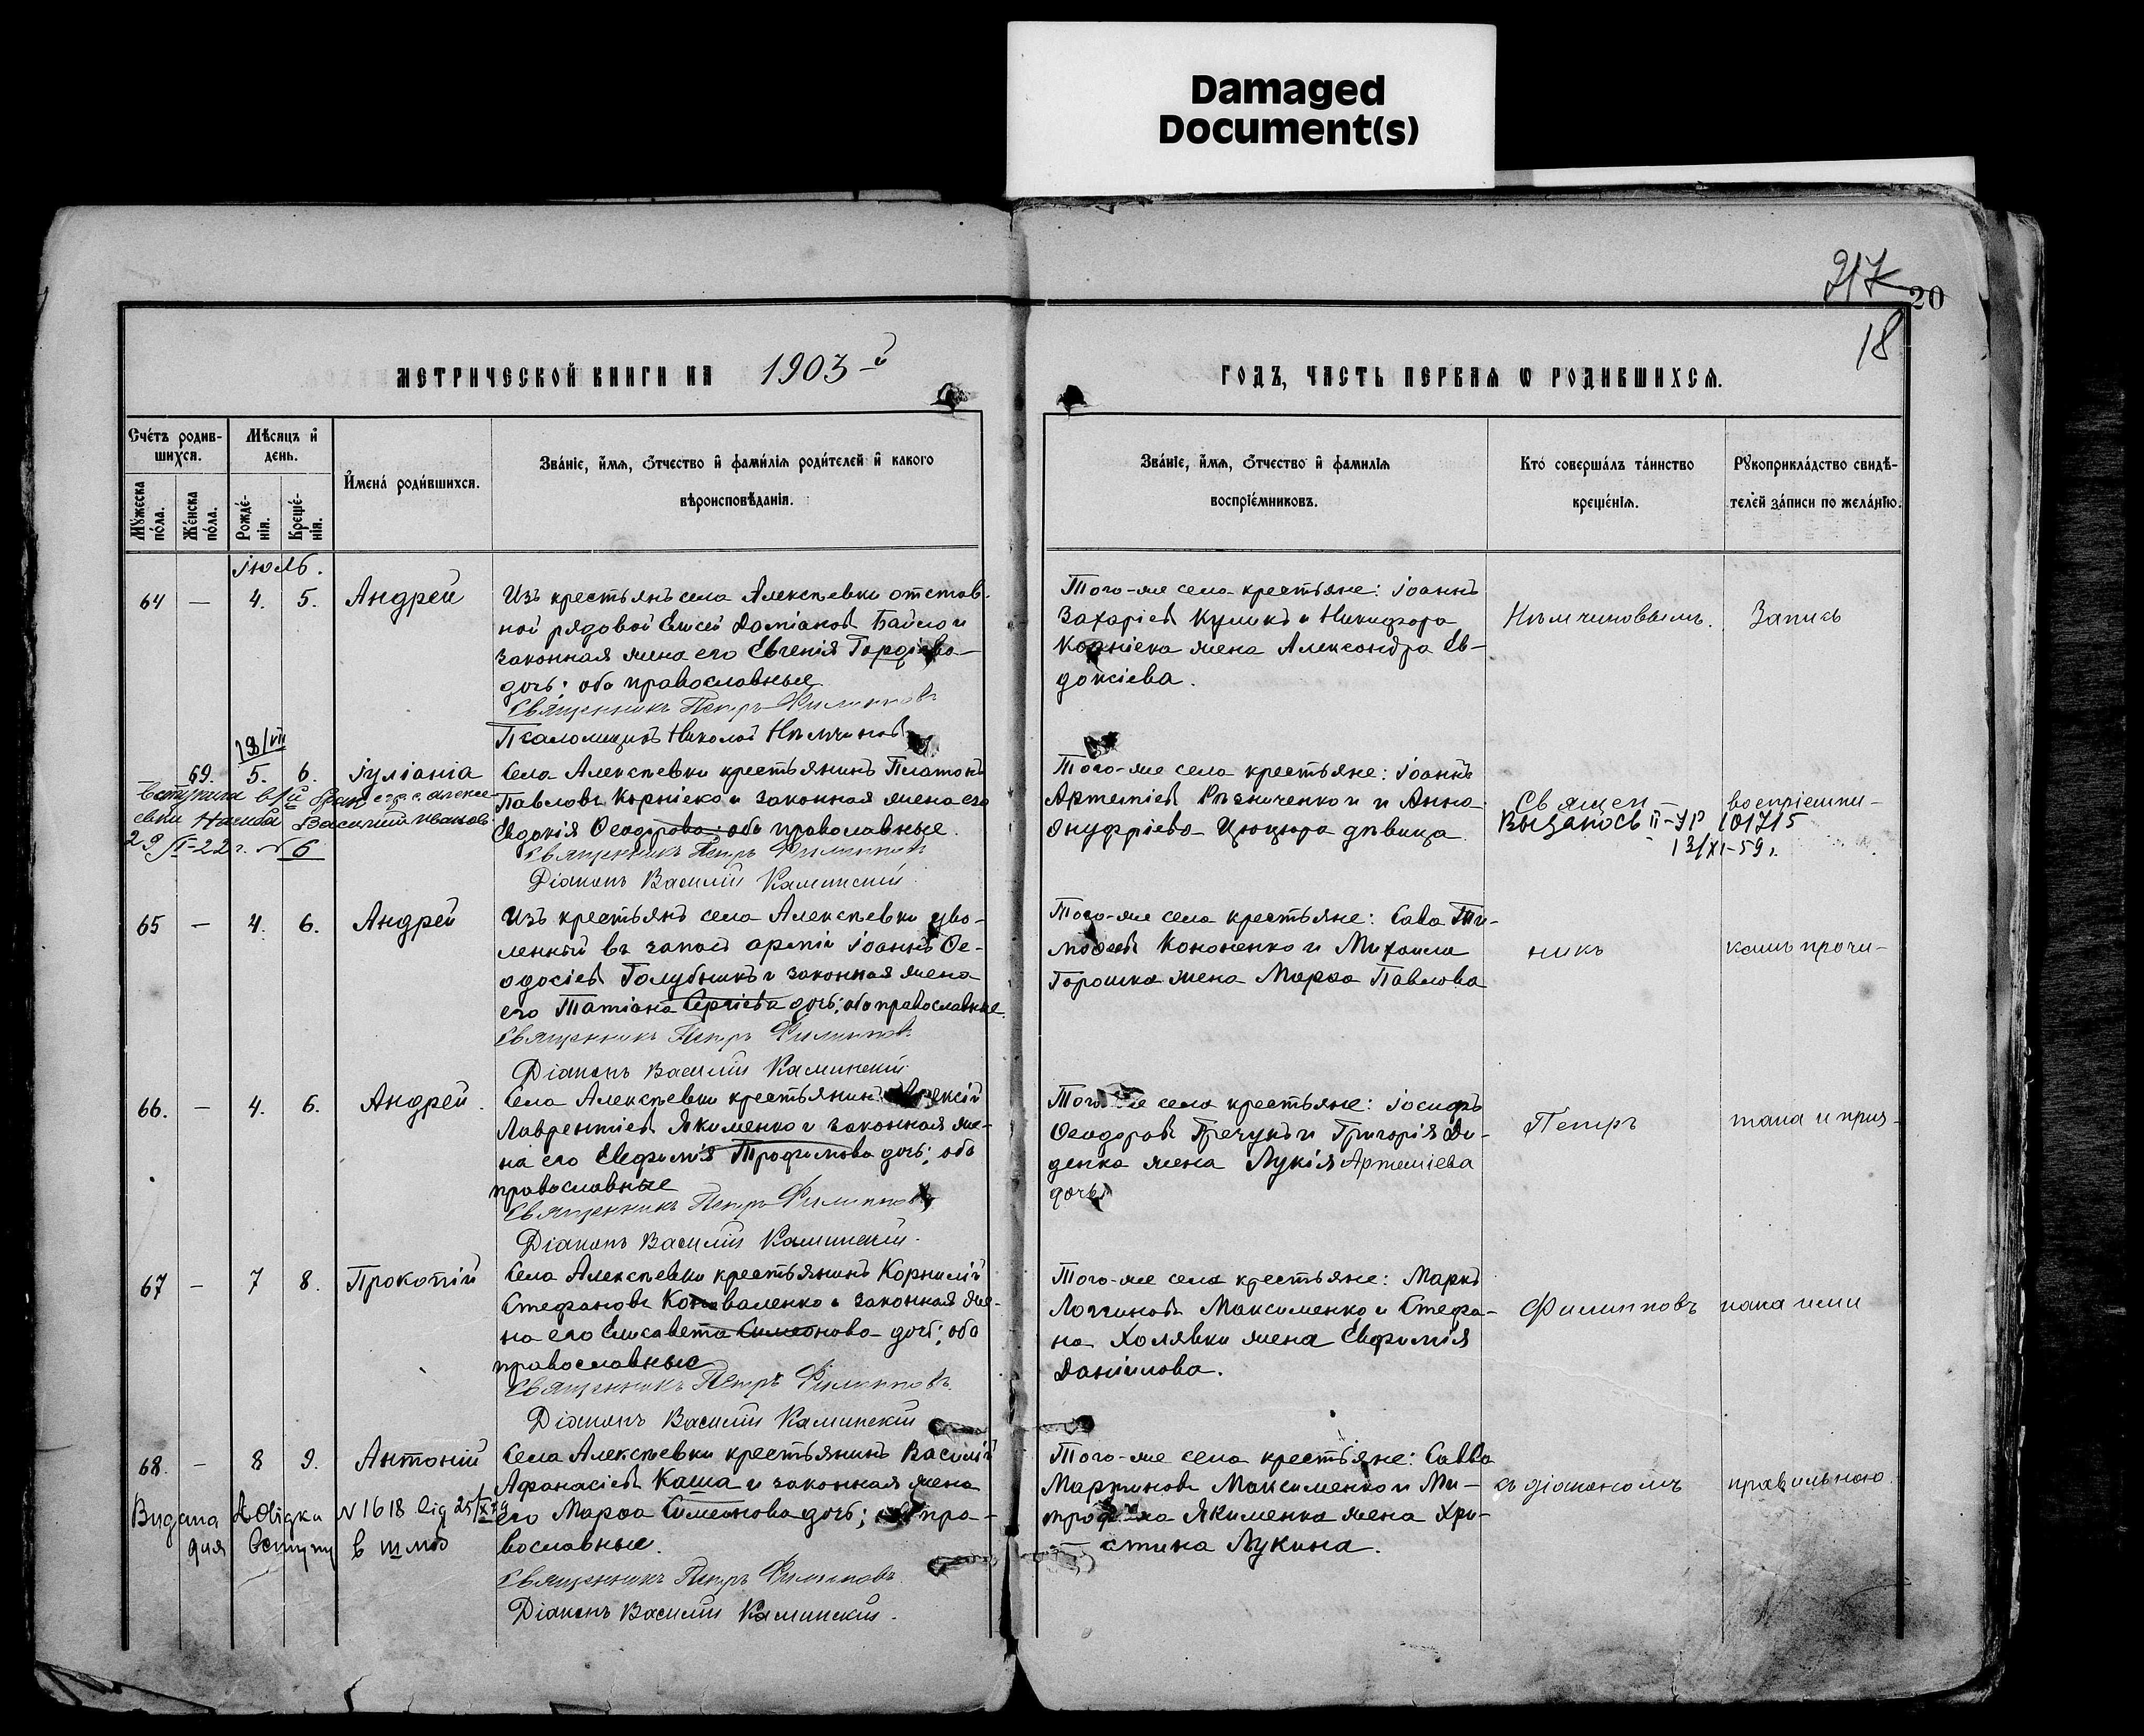 Damaged
Document(s)
217
20
18
МЕТРИЧЕСКОЙ КНИГИ НА 1903-й
ГОДЪ, ЧАСТЬ ПЕРВАЯ Ѡ РОДИВШИХСѦ.
Счётъ родив-
шихся.
Мѣсяцъ и
день.
Имена родившихся.
Званіе, имя, отчество и фамилія родителей и какого
вѣроисповѣданія.
Званіе, имя, отчество и фамилія
воспріемниковъ.
Кто совершалъ таинство
крещенія.
Рукоприкладство свидѣ-
телей записи по желанію.
Мужеска
пола.
Женска
пола.
Рожде-
нія.
Креще-
нія.
Іюль.
64 — 4. 5. Андрей
Изъ крестьянъ села Алексѣевки отстав-
ной рядовой Елисей Даміановъ Байло и
законная жена его Евгенія Гордіева
дочь; оба православные
Священникъ Петръ Филипповъ
Псаломщикъ Николай Нѣмчиновъ
Того-же села крестьяне: Іоаннъ
Захаріевъ Куликъ и Никифора
Корніека жена Александра Ев-
докіева.
Нѣмчиновымъ.
Запись
18/VII
69. 5. 6. Іуліанія
Вступила в 1й брак с гр. с. Алексе-
евки Василий Иванов.
29/I-22 г. № 6
Села Алексѣевки крестьянинъ Платонъ
Павловъ Корніеко и законная жена его
Евдокія Ѳеодорова; оба православные.
Священникъ Петръ Филипповъ
Діаконъ Василій Каминскій
Того-же села крестьяне: Іоаннъ
Артеміевъ Рѣзниченко и Анна
Онуфріева Цюцюра дѣвица
Священ-
Выдалось II-УР 101715
13/XI-59 г.
воспріемни-
65 — 4. 6. Андрей
Изъ крестьянъ села Алексѣевки уво-
ленный въ запасъ арміи Іоаннъ Ѳе-
одосіевъ Голубникъ и законная жена
его Татіана Сергіева дочь; оба православные.
Священникъ Петръ Филипповъ
Діаконъ Василій Каминскій
Того-же села крестьяне: Сава Ти-
моѳеевъ Кононенко и Михаила
Горошка жена Марѳа Павлова
никъ
камъ прочи-
66. — 4. 6. Андрей.
Села Алексѣевки крестьянинъ Алексій
Лаврентіевъ Якименко и законная же-
на его Евфимія Трофимова дочь; оба
православные
Священникъ Петръ Филипповъ
Діаконъ Василій Каминскій.
Того-же села крестьяне: Іосифъ
Ѳеодоровъ Пречукъ и Григорія Ди-
денка жена Лукія Артеміева
дочь
Петръ
тана и приз-
67 — 7 8. Прокопій
Села Алексѣевки крестьянинъ Корнилій
Стефановъ Коноваленко и законная же-
на его Елисавета Симеонова дочь; оба
православные
Священникъ Петръ Филипповъ.
Діаконъ Василій Каминскій
Того-же села крестьяне: Маркъ
Логгиновъ Максименко и Стефа-
на Холявки жена Евфимія
Даніилова.
Филипповъ
нана ими
68. — 8 9. Антоній
Видана довідка № 1618 від 25/IX
для вступу в школу
Села Алексѣевки крестьянинъ Василій
Афанасіевъ Каша и законная жена
его Марѳа Симеонова дочь; оба пра-
вославные.
Священникъ Петръ Филипповъ.
Діаконъ Василій Каминскій.
Того-же села крестьяне: Савва
Мартиновъ Максименко и Ми-
трофана Якименка жена Хри-
стина Лукина.
съ діакономъ
правильною.